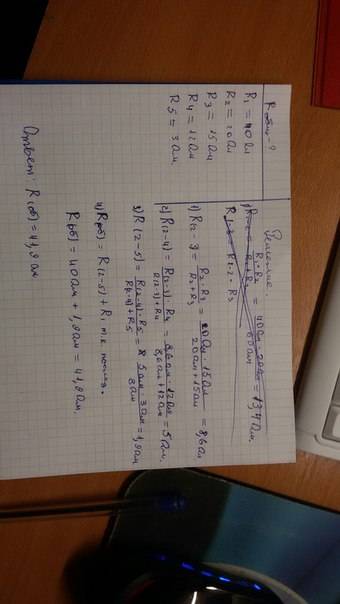 R общ - ?
R1 = 40 Ом
R2 = 20 Ом
R3 = 15 Ом
R4 = 12 Ом
R5 = 3 Ом.
Решение.
1) R1-2 = R1 · R2 / R1 + R2 = 40 Ом · 20 Ом / 60 Ом = 13,4 Ом.
R1-3 = R1-2 · R3
1) R(2-3) = R2 · R3 / R2 + R3 = 20 Ом · 15 Ом / 20 Ом + 15 Ом = 8,6 Ом
2) R(2-4) = R(2-3) · R4 / R(2-3) + R4 = 8,6 Ом · 12 Ом / 8,6 Ом + 12 Ом = 5 Ом.
3) R(2-5) = R(2-4) · R5 / R(2-4) + R5 = 5 Ом · 3 Ом / 8 Ом = 1,9 Ом
4) R(об) = R(2-5) + R1 т.к. послед.
R(об) = 40 Ом + 1,9 Ом = 41,9 Ом.
Ответ: R(об) = 41,9 Ом